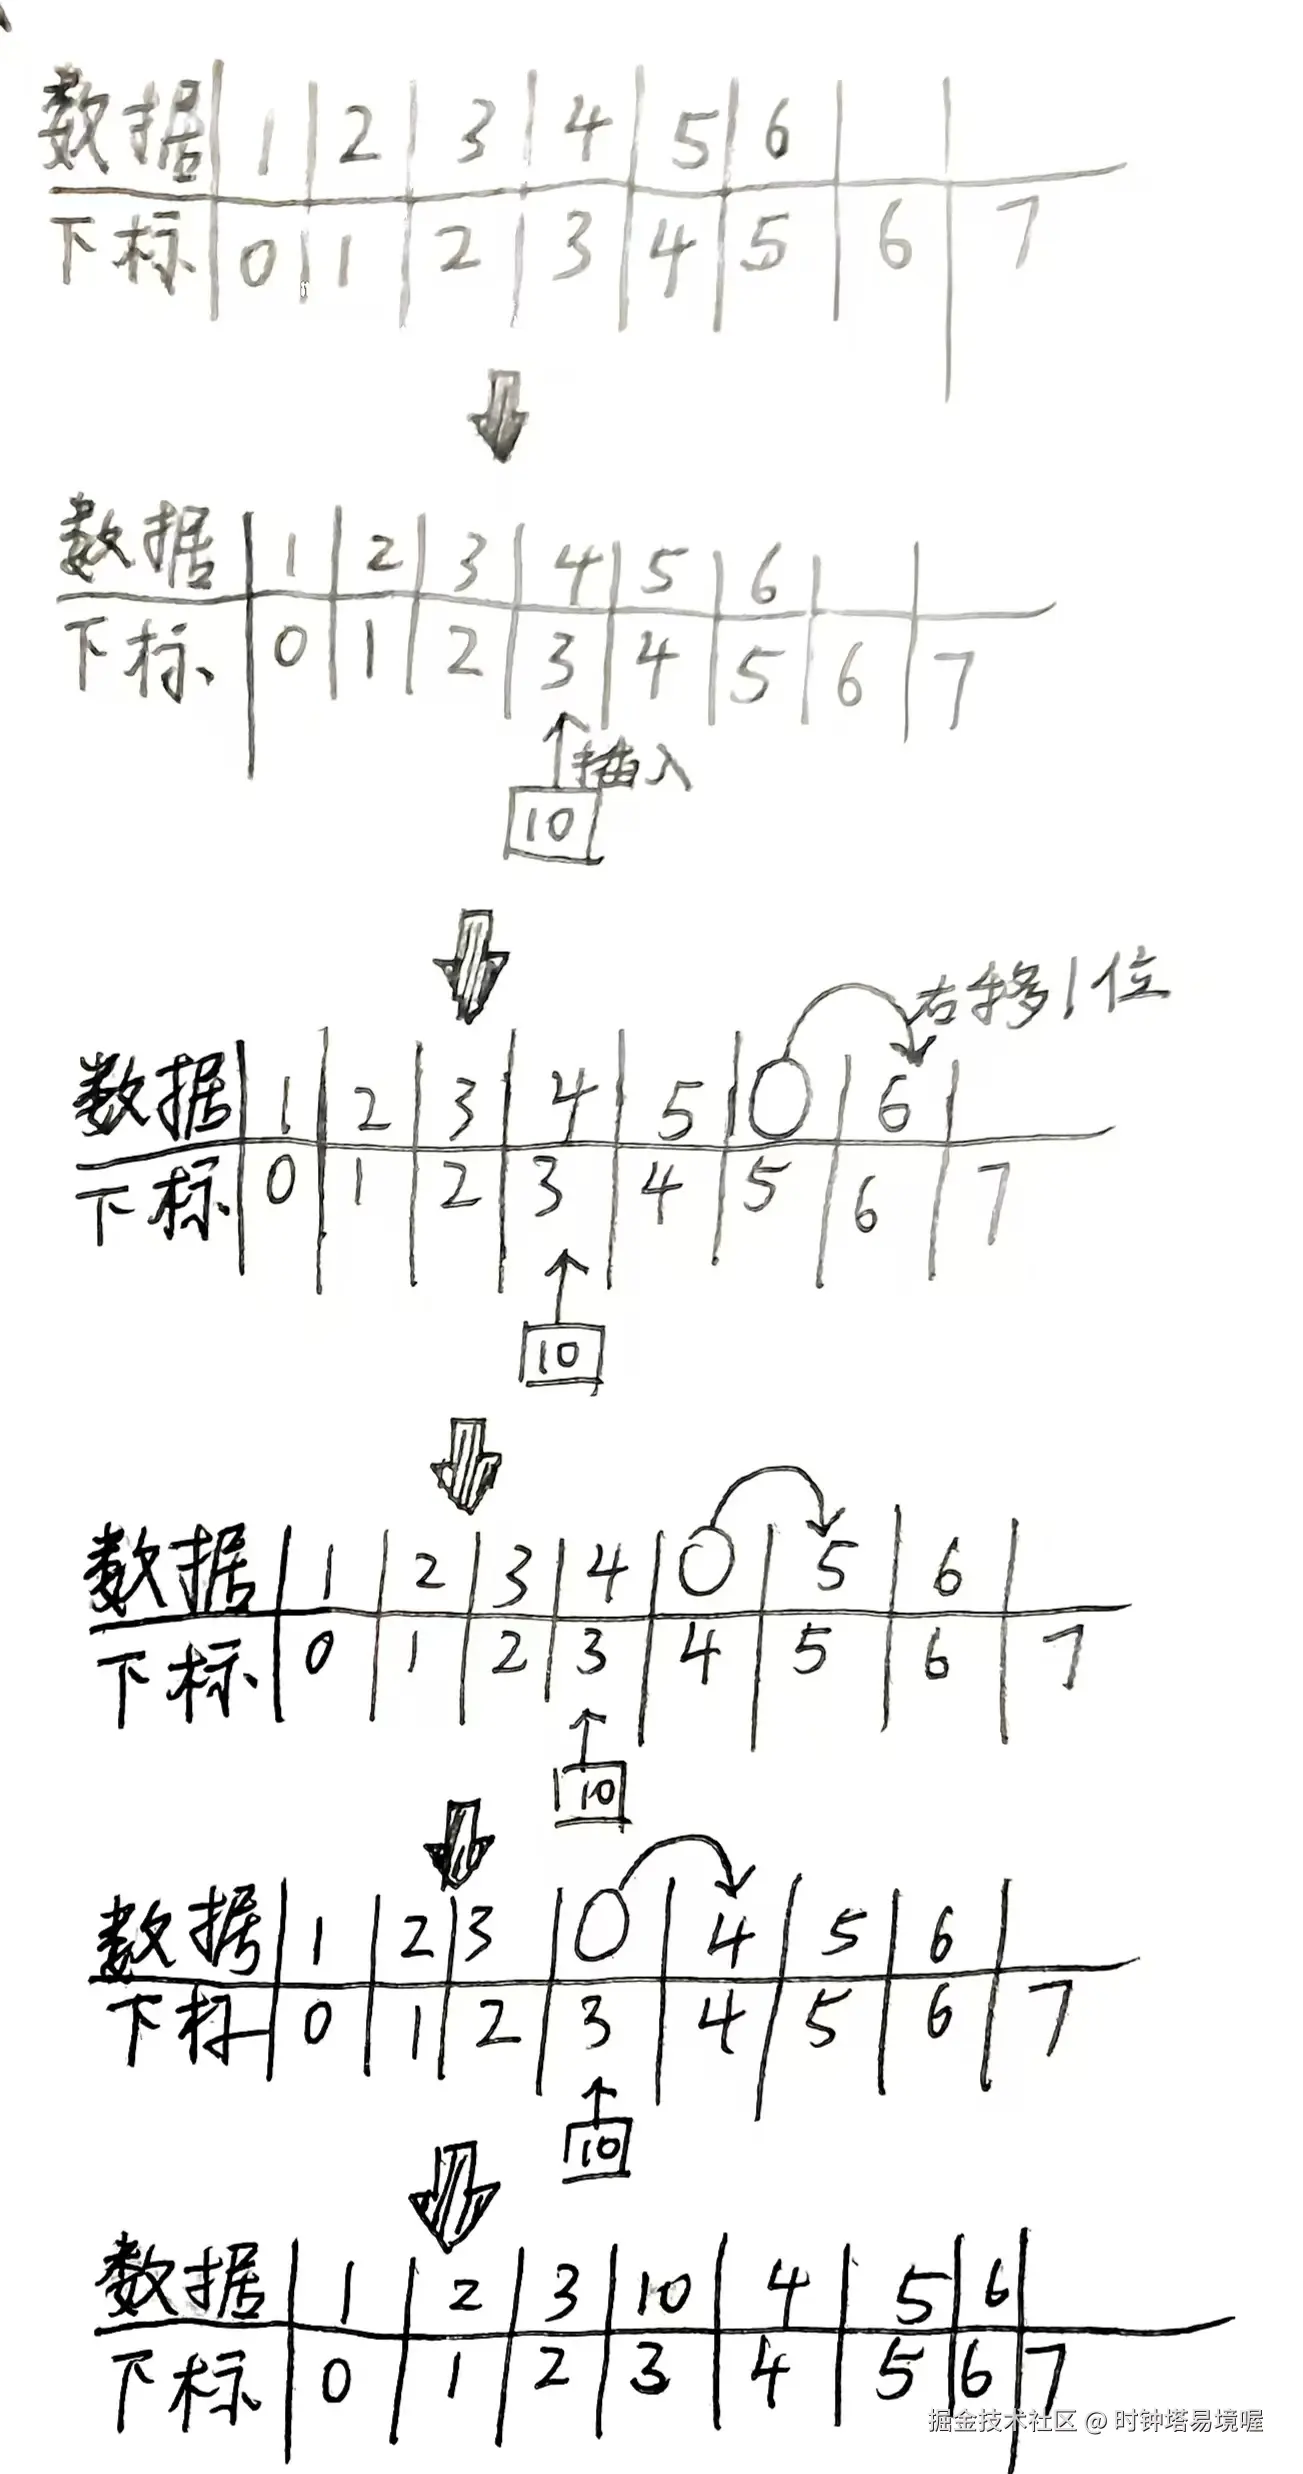 数据 1 2 3 4 5 6
下标 0 1 2 3 4 5 6 7
数据 1 2 3 4 5 6
下标 0 1 2 3 4 5 6 7
插入
10
右移1位
数据 1 2 3 4 5 6
下标 0 1 2 3 4 5 6 7
10
数据 1 2 3 4 5 6
下标 0 1 2 3 4 5 6 7
10
数据 1 2 3 4 5 6
下标 0 1 2 3 4 5 6 7
10
数据 1 2 3 10 4 5 6
下标 0 1 2 3 4 5 6 7
掘金技术社区 @ 时钟塔易境喔